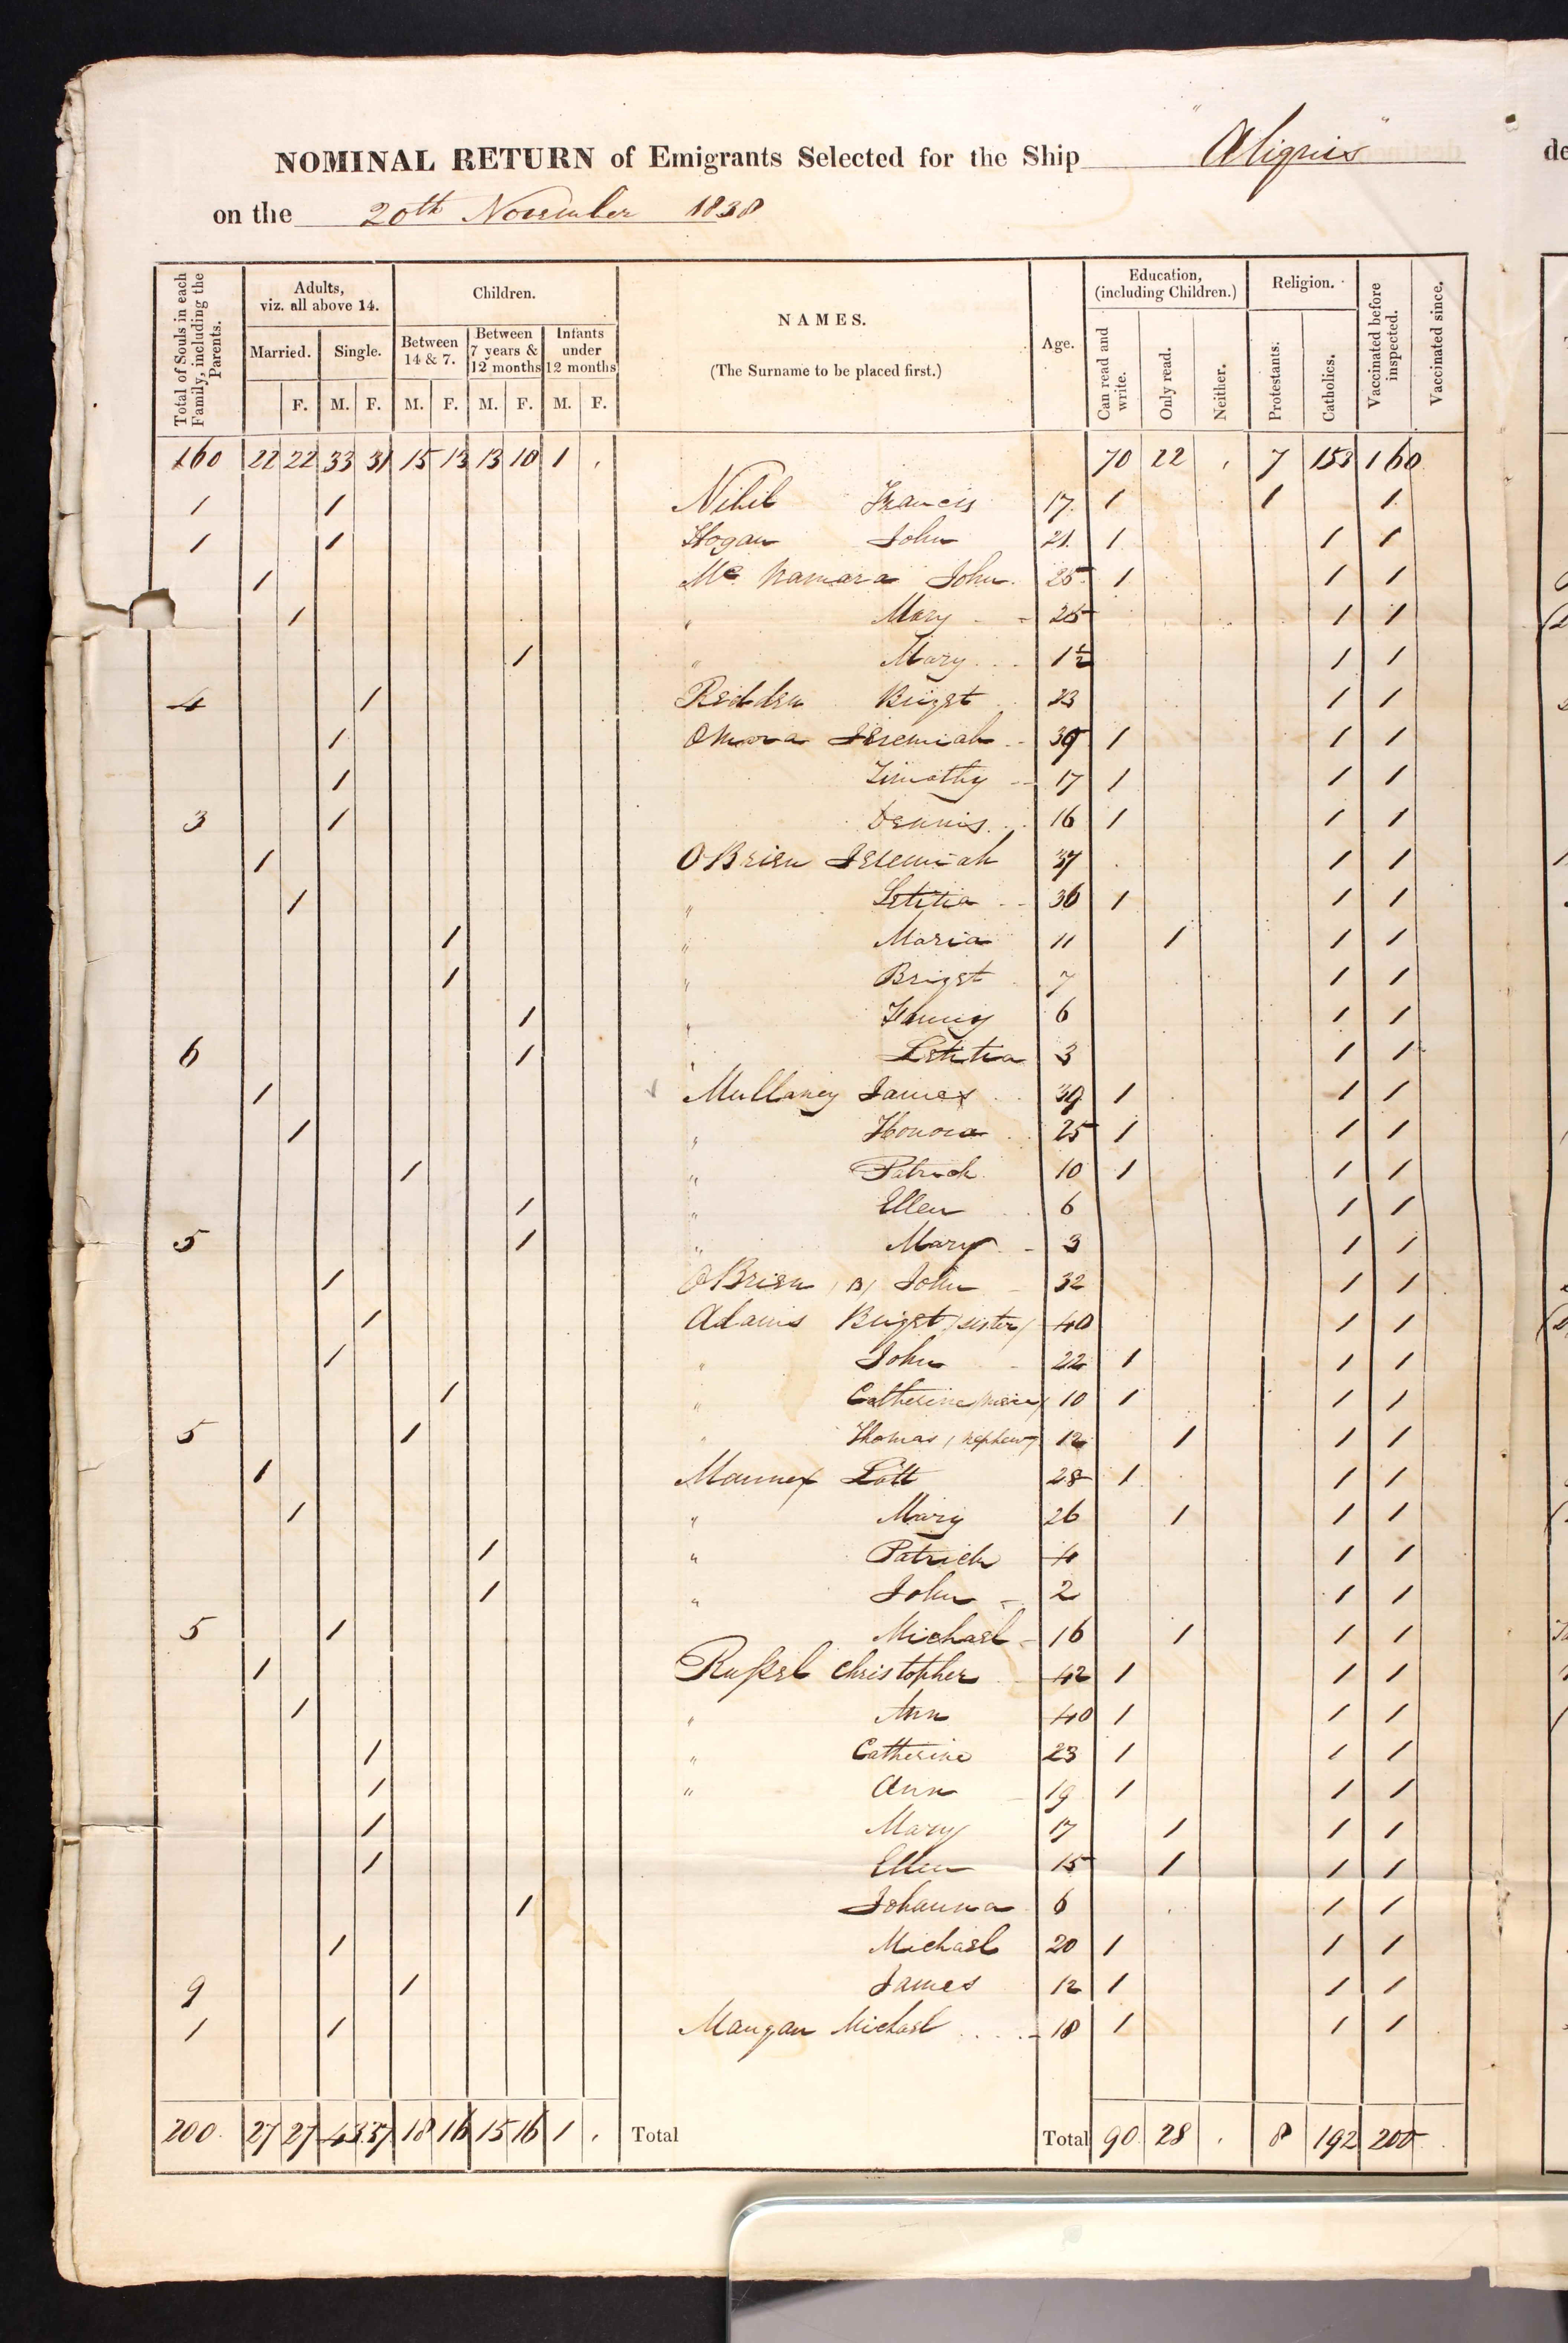 NOMINAL RETURN of Emigrants Selected for the Ship "Aliquis"
on the 20th November 1838
Total of Souls in each Family, including the Parents.
Adults, viz. all above 14.
Children.
NAMES.
(The Surname to be placed first.)
Age.
Education, (including Children.)
Religion.
Vaccinated before inspected.
Vaccinated since.
Married. Single. Between 14 & 7. Between 7 years & 12 months Infants under 12 months
Can read and write. Only read. Neither. Protestants. Catholics.
F. M. F. M. F. M. F. M. F.
160 22 22 33 31 15 13 13 10 1 . 70 22 . 7 153 160
1 1 Nihil Francis 17 1 1 1
1 1 Hogan John 21 1 1 1
1 Mc Namara John 25 1 1 1
1 " Mary 25 1 1
1 " Mary 1½ 1 1
4 1 Redden Briget 23 1 1
1 Omara Jeremiah 39 1 1 1
1 Timothy 17 1 1 1
3 1 Dennis 16 1 1 1
1 OBrien Jeremiah 37 1 1
1 " Letitia 36 1 1 1
1 " Maria 11 1 1 1
1 " Briget 7 1 1
1 " Fanny 6 1 1
6 1 " Letitia 3 1 1
1 Mullaney James 39 1 1 1
1 " Honora 25 1 1 1
1 " Patrick 10 1 1 1
1 " Ellen 6 1 1
5 1 " Mary 3 1 1
1 OBrien (B) John 32 1 1
1 Adams Briget (sister) 40 1 1
1 " John 22 1 1 1
1 " Catherine (niece) 10 1 1 1
5 1 " Thomas (nephew) 12 1 1 1
1 Mannex Lott 28 1 1 1
1 " Mary 26 1 1 1
1 " Patrick 4 1 1
1 " John 2 1 1
5 1 Michael 16 1 1 1
1 Russel Christopher 42 1 1 1
1 " Ann 40 1 1 1
1 " Catherine 23 1 1 1
1 " Ann 19 1 1 1
1 Mary 17 1 1 1
1 Ellen 15 1 1 1
1 Johanna 6 1 1
1 Michael 20 1 1 1
9 1 James 12 1 1 1
1 1 Mangan Michael 18 1 1 1
200 27 27 43 37 18 16 15 16 1 . Total Total 90 28 . 8 192 200